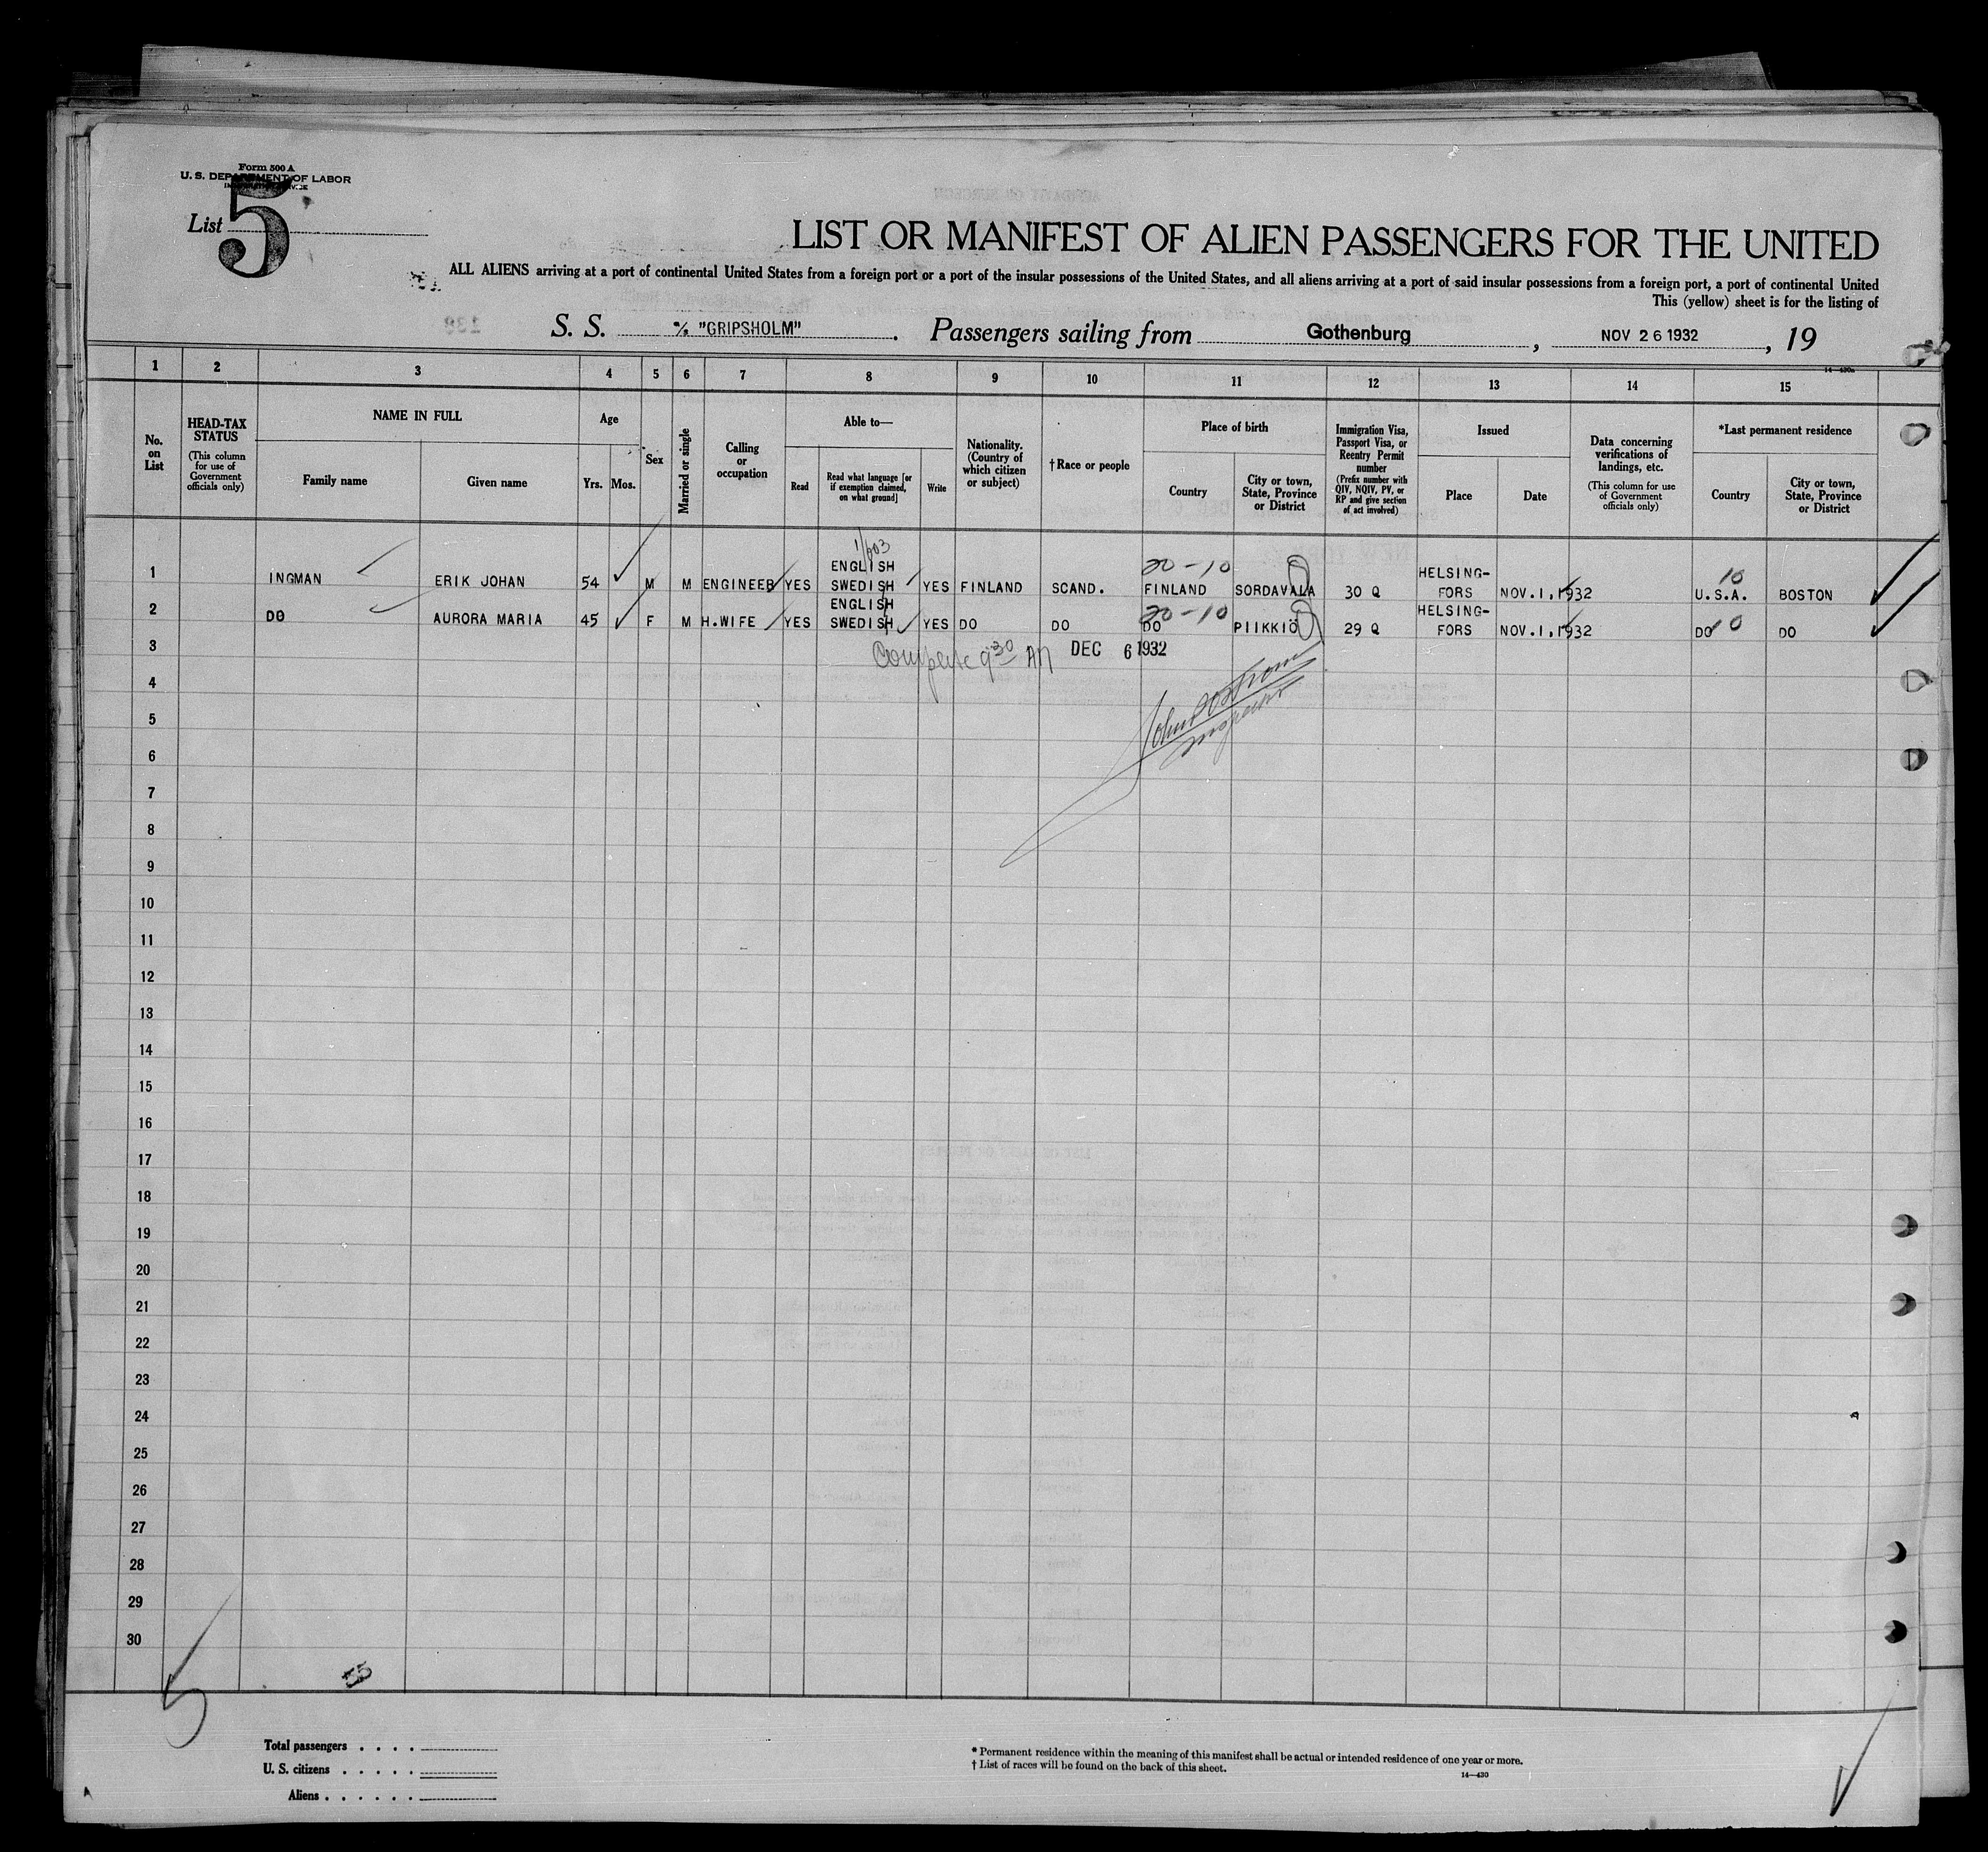 Form 500 A
U. S. DEPARTMENT OF LABOR
List 5
LIST OR MANIFEST OF ALIEN PASSENGERS FOR THE UNITED
ALL ALIENS arriving at a port of continental United States from a foreign port or a port of the insular possessions of the United States, and all aliens arriving at a port of said insular possessions from a foreign port, a port of continental United
This (yellow) sheet is for the listing of
S. S. "GRIPSHOLM". Passengers sailing from Gothenburg, NOV 26 1932, 19
14—430a
1 2 3 4 5 6 7 8 9 10 11 12 13 14 15
No. on List
HEAD-TAX STATUS
(This column for use of Government officials only)
NAME IN FULL
Family name
Given name
Age
Yrs. Mos.
Sex
Married or single
Calling or occupation
Able to—
Read
Read what language [or if exemption claimed, on what ground]
Write
Nationality. (Country of which citizen or subject)
†Race or people
Place of birth
Country
City or town, State, Province or District
Immigration Visa, Passport Visa, or Reentry Permit number
(Prefix number with QIV, NQIV, PV, or RP and give section of act involved)
Issued
Place
Date
Data concerning verifications of landings, etc.
(This column for use of Government officials only)
*Last permanent residence
Country
City or town, State, Province or District
1 INGMAN ERIK JOHAN 54 M M ENGINEER YES ENGLISH SWEDISH YES FINLAND SCAND. 20-10 FINLAND SORDAVALA 30 Q HELSING-FORS NOV.1,1932 10 U.S.A. BOSTON
2 DO AURORA MARIA 45 F M H.WIFE YES ENGLISH SWEDISH YES DO DO 20-10 DO PIIKKIÖ 29 Q HELSING-FORS NOV.1,1932 DO 10 DO
3 Complete 9 30 AM DEC 6 1932
4
5
6
7
8
9
10
11
12
13
14
15
16
17
18
19
20
21
22
23
24
25
26
27
28
29
30
5
Total passengers . . . .
U. S. citizens . . . . .
Aliens . . . . . .
* Permanent residence within the meaning of this manifest shall be actual or intended residence of one year or more.
† List of races will be found on the back of this sheet.
14—430